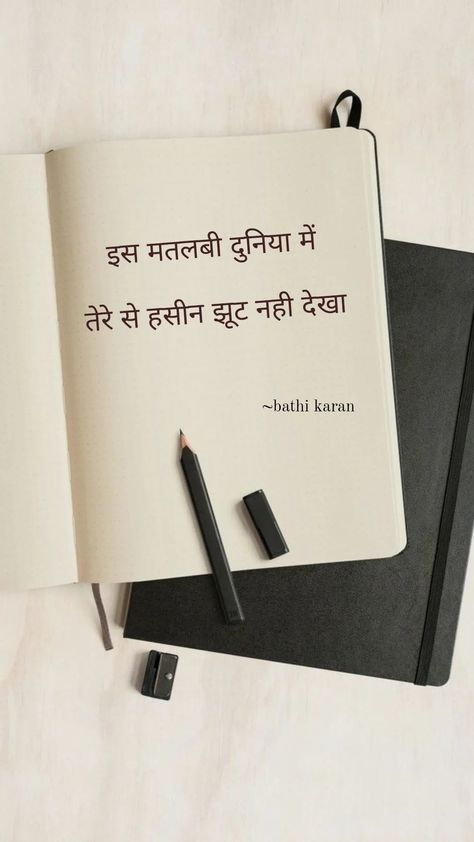 इस मतलबी दुनिया में
तेरे से हसीन झूट नही देखा
~bathi karan